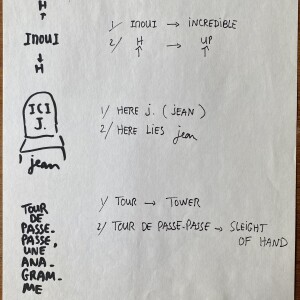 H
↑
INOUI
↓
H
1/ INOUI → INCREDIBLE
2/ H → UP
↑ ↑
ICI
J.
jean
1/ HERE J. (JEAN)
2/ HERE LIES jean
TOUR
DE
PASSE-
PASSE,
UNE
ANA-
GRAM-
ME
1/ TOUR → TOWER
2/ TOUR DE PASSE-PASSE → SLEIGHT
OF HAND